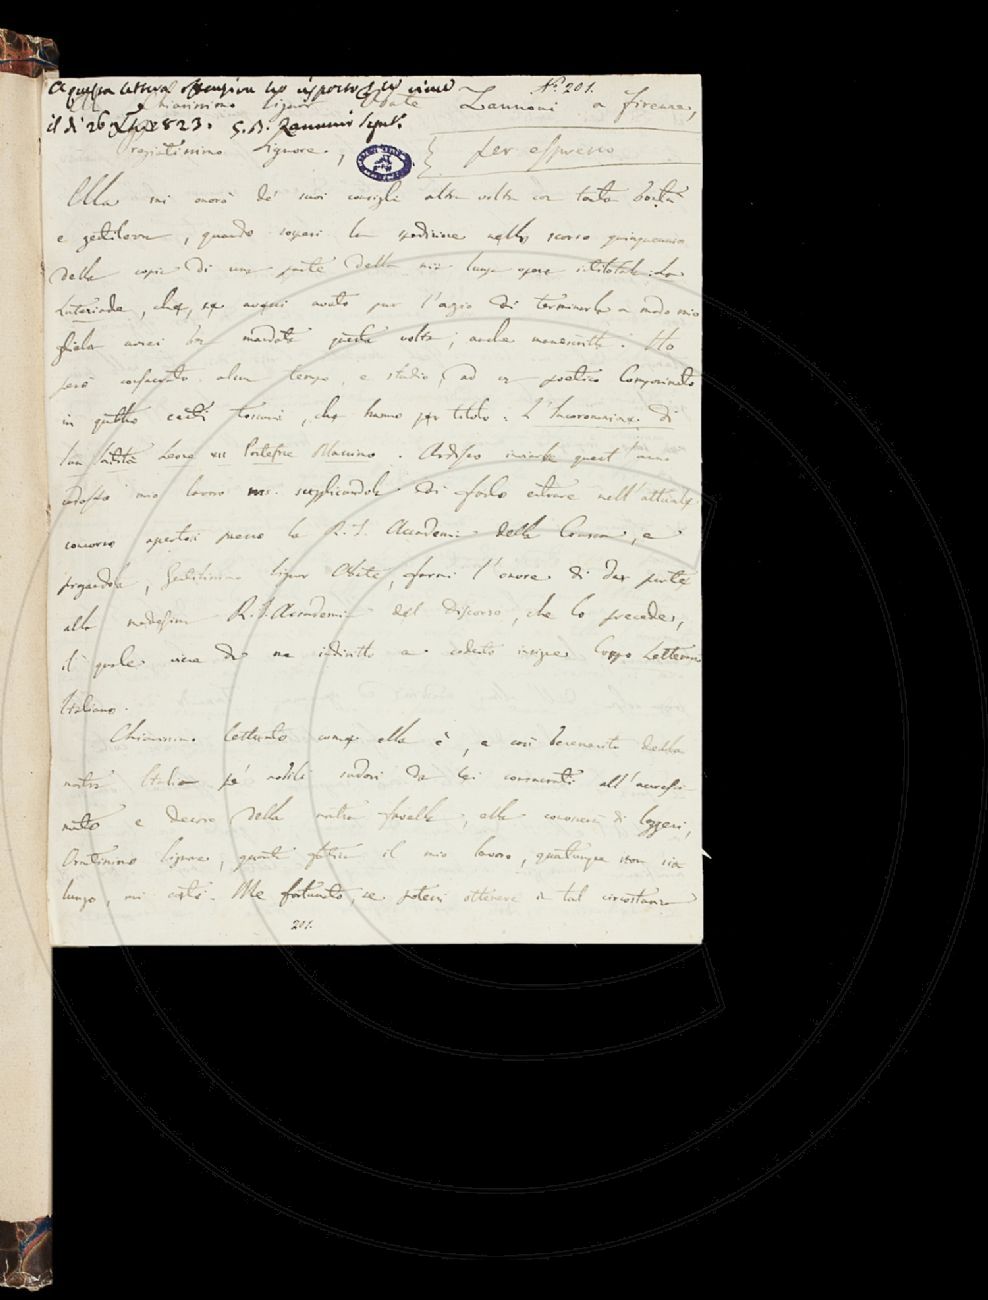 A questa lettera ho risposto
N.º 201.
Chiarissimo Signor Abate Zannoni a Firenze,
il dì 26 Xbre 1823. G. B. Zannoni Segret.
Pregiatissimo Signore.
per espresso
Ella mi onorò de' suoi consigli altra volta con tanta bontà
e gentilezza, quando sospesi la spedizione nello scorso quinquennio
della copia di una parte della mia lunga opera intitolata: La
che, se avessi avuto pur l'agio di terminarla a modo mio
avrei mandata questa volta, anche manoscritta. Ho
però consacrato alcun tempo, e studio, ad un poetico Componimento
in quattro canti toscani, che hanno per titolo: L'Incoronazione di
Sua Santità Leone XII Pontefice Massimo. Ardisco inviarle quest'anno
mio lavoro ms. supplicandola di farlo entrare nell'attuale
concorso apertosi presso la R. I. Accademia della Crusca, e
pregandola, Gentilissimo Signor Abate, farmi l'onore di dar parte
alla medesima R. I. Accademia del discorso, che lo precede,
il quale viene da me indiritto a codesto insigne Corpo Letterario
Italiano.
Chiarissimo Letterato com'ella è, e così benemerito della
nostra Italia pe' nobili sudori da Lei consacrati all'
e decoro della nostra favella, ella conoscerà di leggeri,
Ornatissimo Signore, quanta fatica il mio lavoro, quantunque non sia
lungo, mi costi. Me fortunato, se potessi ottenere in tal circostanza
201.